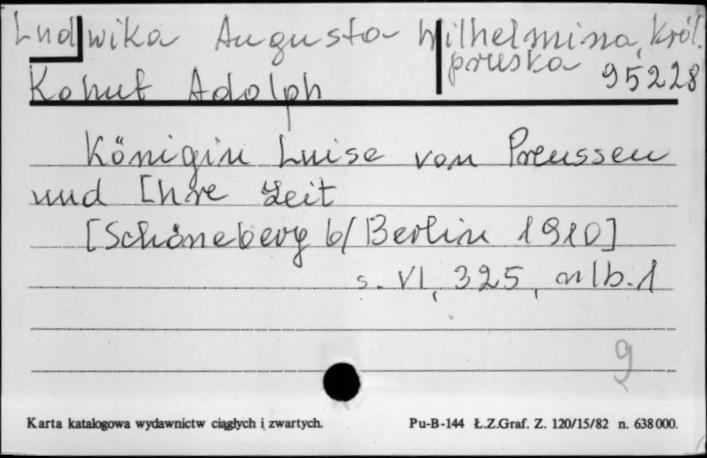 Ludwika Augusta Wilhelmina, król.
pruska 95228
Kohut Adolph
Königin Luise von Preussen
und Ihre Zeit
[Schöneberg b/Berlin 1910]
s. VI, 325, nlb. 1
9
Karta katalogowa wydawnictw ciągłych i zwartych. Pu-B-144 Ł.Z.Graf. Z. 120/15/82 n. 638000.